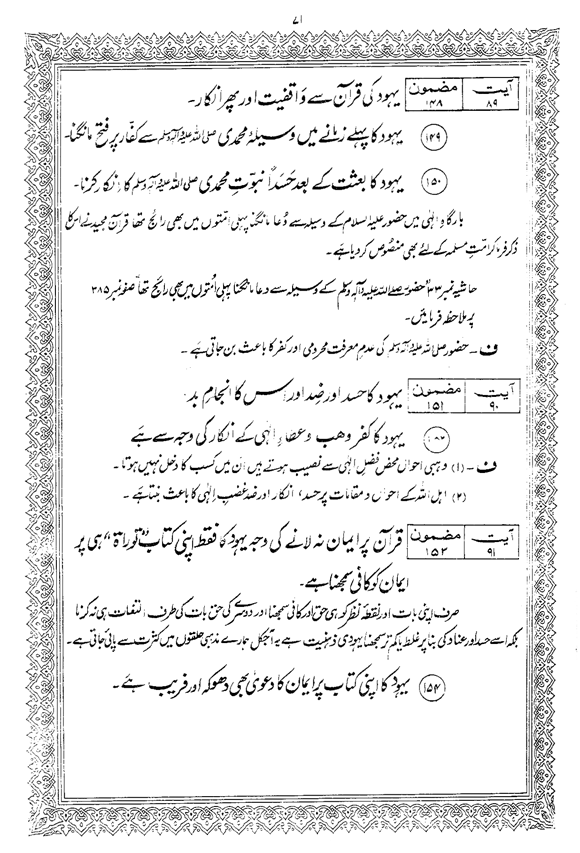 ۷۱
آیت ۸۹ مضمون ۱۴۸ یہود کی قرآن سے واقفیت اور پھر انکار۔
۱۴۹ یہود کا پہلے زمانے میں وسیلۂ محمدی صلی اللہ علیہ وآلہ وسلم سے کفّار پر فتح مانگنا۔
۱۵۰ یہود کا بعثت کے بعد حَسَداً نبوّتِ محمدی صلی اللہ علیہ وآلہ وسلم کا انکار کرنا۔
بارگاہِ الٰہی میں حضور علیہ السلام کے وسیلہ سے دُعا مانگنا پہلی اُمّتوں میں بھی رائج تھا قرآن مجید نے اسکا
ذکر فرما کر اُمّتِ مسلمہ کے لئے بھی منصوص کر دیا ہے۔
حاشیہ نمبر ۳۳ "حضور صلی اللہ علیہ وآلہ وسلم کے وسیلہ سے دعا مانگنا پہلی اُمتوں میں بھی رائج تھا" صفحہ نمبر ۳۸۵
پر ملاحظہ فرمائیں۔
ف ۔ حضور صلی اللہ علیہ وآلہ وسلم کی عدم معرفت محرومی اور کفر کا باعث بن جاتی ہے ۔
آیت ۹۰ مضمون ۱۵۱ یہود کا حسد اور ضد اور اس کا انجامِ بد
یہود کا کفر وھب و عطاءِ الٰہی کے انکار کی وجہ سے ہے
ف ۔ (۱) وہبی احوال محض فضلِ الٰہی سے نصیب ہوتے ہیں ان میں کسب کا دخل نہیں ہوتا ۔
(۲) اہل اللہ کے احوال و مقامات پر حسد، انکار اور ضد غضبِ الٰہی کا باعث بنتا ہے ۔
آیت ۹۱ مضمون ۱۵۳ قرآن پر ایمان نہ لانے کی وجہ یہود کا فقط اپنی کتاب "توراۃ" ہی پر
ایمان کو کافی سمجھنا ہے۔
صرف اپنی بات اور نقطۂ نظر کو ہی حق اور کافی سمجھنا اور دوسرے کی حق بات کی طرف التفات ہی نہ کرنا
بلکہ اسے حسد اور عناد کی بنا پر غلط یا کم تر سمجھنا یہودی ذہنیت ہے یہ آجکل ہمارے مذہبی حلقوں میں کثرت سے پائی جاتی ہے۔
۱۵۴ یہود کا اپنی کتاب پر ایمان کا دعویٰ بھی دھوکہ اور فریب ہے ۔